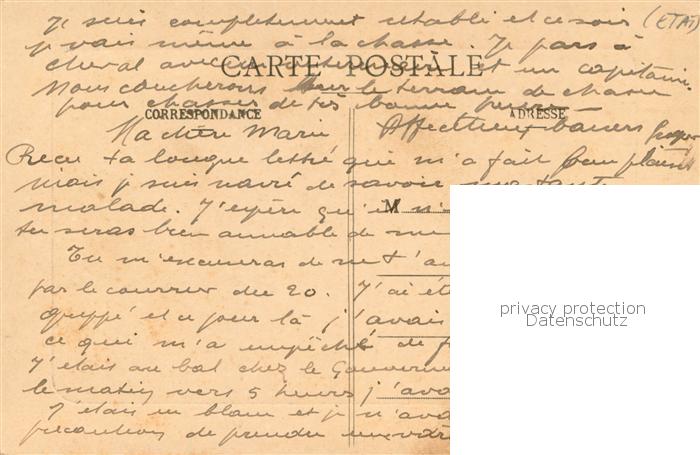 Je suis complètement rétabli et ce soir (ETAT)
je vais même à la chasse. Je pars à
cheval avec un et un capitaine.
Nous coucherons sur le terrain de chasse
pour chasser de très bonne heure
CARTE POSTALE
CORRESPONDANCE
ADRESSE
Ma chère Marie Affectueux baisers
Reçu ta longue lettre qui m'a fait bien plaisir
mais je suis navré de savoir ma tante
malade. J'espère qu'
M
tu seras bien aimable de me
Tu m'excuseras de ne t'a
par le courrier du 20. J'ai ét
grippé et ce jour là j'avais
ce qui m'a empêché de f
J'étais au bal chez le Gouvern
le matin vers 5 heures j'ava
J'étais en blanc et je n'ava
précautions de prendre un
privacy protection
Datenschutz